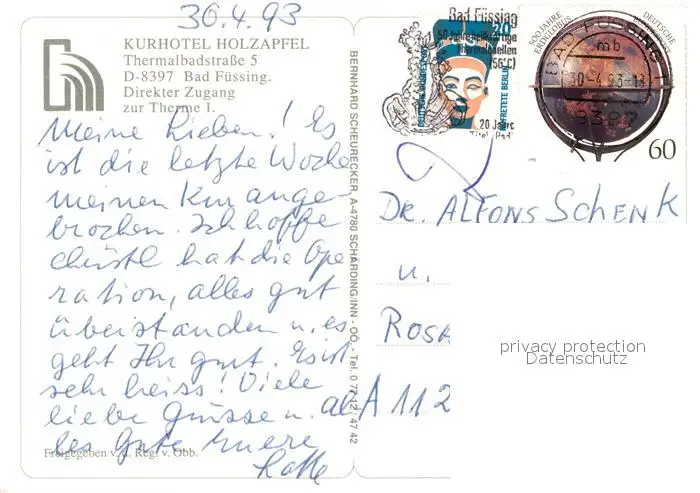 30.4.93
KURHOTEL HOLZAPFEL
Thermalbadstraße 5
D-8397 Bad Füssing.
Direkter Zugang
zur Therme I.
Meine Lieben! Es
ist die letzte Woche
meinen Kur ange-
brochen. Ich hoffe
Christl hat die Ope-
ration, alles gut
überstanden u. es
geht Ihr gut. Es ist
sehr heiss! Viele
liebe Grüsse u. al-
les Gute Euere
Freigegeben v. d. Reg. v. Obb.
BERNHARD SCHEURECKER, A-4780 SCHÄRDING/INN - OÖ, - Tel. 0 77 12 / 47 42
Bad Füssing
50 Jahre
Thermalquellen
(56°C)
20 Jahre
DEUTSCHE BUNDESPOST
NOFRETETE BERLIN
500 JAHRE
ERDGLOBUS
DEUTSCHE
BAD FÜSSING 1
mb
30-4.93-
8397
60
DR. ALFONS SCHENK
u.
ROSA
A 112
privacy protection
Datenschutz